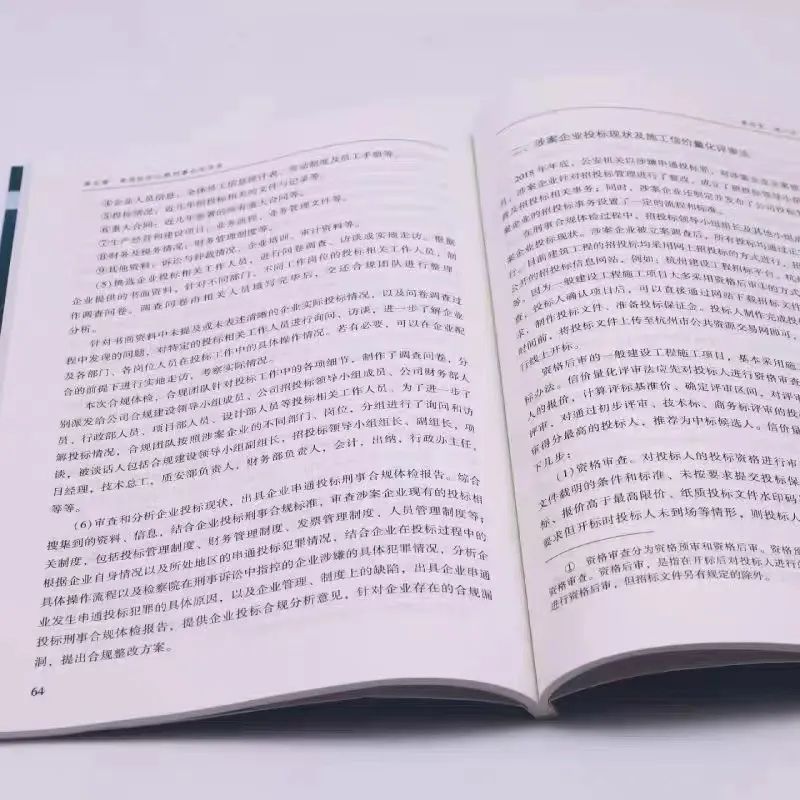 ④企业人员信息：全体员工信息统计表、劳动制度及员工手册等。
⑤投标情况：近几年招投标相关的文件与记录等。
⑥重大合同：近几年签署的所有重大合同等。
⑦生产经营和建设项目：业务流程，业务管理文件等。
⑧财务及税务情况：财务管理制度等。
⑨其他资料：诉讼与仲裁情况、企业培训、审计资料等。
(5)挑选企业投标相关工作人员，进行问卷调查、访谈或实地走访。根据
企业提供的书面资料，针对不同部门、不同工作岗位的投标相关工作人员，制
作调查问卷。调查问卷由相关人员填写完毕后，交还合规团队进行整理
分析。
针对书面资料中未提及或未表述清晰的企业实际投标情况，以及问卷调查过
程中发现的问题，对特定的投标相关工作人员进行询问、访谈，进一步了解企业
及各部门、各岗位人员在投标工作中的具体操作情况。若有必要，可以在企业配
合的前提下进行实地走访、考察实际情况。
本次合规体检，合规团队针对投标工作中的各项细节，制作了调查问卷，分
别派发给公司合规建设领导小组成员、公司招投标领导小组成员、公司财务部人
员、行政部人员、项目部人员、设计部人员等投标相关工作人员。为了进一步了
解投标情况，合规团队按照涉案企业的不同部门、岗位，分组进行了询问和访
谈，被谈话人包括合规建设领导小组副组长，招投标领导小组组长、副组长，项
目经理，技术总工，质安部负责人，财务部负责人，会计，出纳，行政办主任，
等等。
(6)审查和分析企业投标现状，出具企业串通投标刑事合规体检报告。综合
搜集到的资料、信息，结合企业投标刑事合规标准，审查涉案企业现有的投标相
关制度，包括投标管理制度、财务管理制度、发票管理制度、人员管理制度等；
根据企业自身情况以及所处地区的串通投标犯罪情况，结合企业在投标过程中的
具体操作流程以及检察院在刑事诉讼中指控的企业涉嫌的具体犯罪情况，分析企
业发生串通投标犯罪的具体原因，以及企业管理、制度上的缺陷，出具企业串通
投标刑事合规体检报告，提供企业投标合规分析意见，针对企业存在的合规漏
洞，提出合规整改方案。
64
二、涉案企业投标现状及施工信价量化评审法
年年底，公安机关以涉嫌串通投标罪，对涉案企业
涉案企业针对招投标管理进行了整改，成立了
及招投标相关事务；同时，涉案企业还制定并发布了公司招投
案企业的招投标事务设置了一定的流程和标准。
在刑事合规体检过程中，招投标领导小组组长及其他小组成
案企业投标现状。涉案企业被立案调查后，所有投标均通过正
行。目前建筑工程的招投标均采用网上招投标的方式进行，招
公共的招投标信息网站，例如：杭州建设工程招标平台、杭州
等。因为一般建设工程施工项目大多采用资格后审①的方式
查，投标人确认项目后，可以直接通过网站下载招标文件
求，制作投标文件、准备投标保证金。投标人制作完成投标
时间前，将投标文件上传至杭州市公共资源交易网即可，
行线上开标。
资格后审的一般建设工程施工项目，基本采用施工
标办法。信价量化评审法应先对投标人进行资格审查
人的报价，计算评标基准价、确定评审区间，对评审
评审，对通过初步评审、技术标、商务标评审的投
审得分最高的投标人，推荐为中标候选人。信价量
下几步：
(1)资格审查。对投标人的投标资格进行审
文件载明的条件和标准、未按要求提交投标保
标、报价高于最高限价、纸质投标文件水印码
要求但开标时投标人未到场等情形，则投标人
① 资格审查分为资格预审和资格后审。资格预
资格审查。资格后审，是指在开标后对投标人进行的
进行资格后审，但招标文件另有规定的除外。